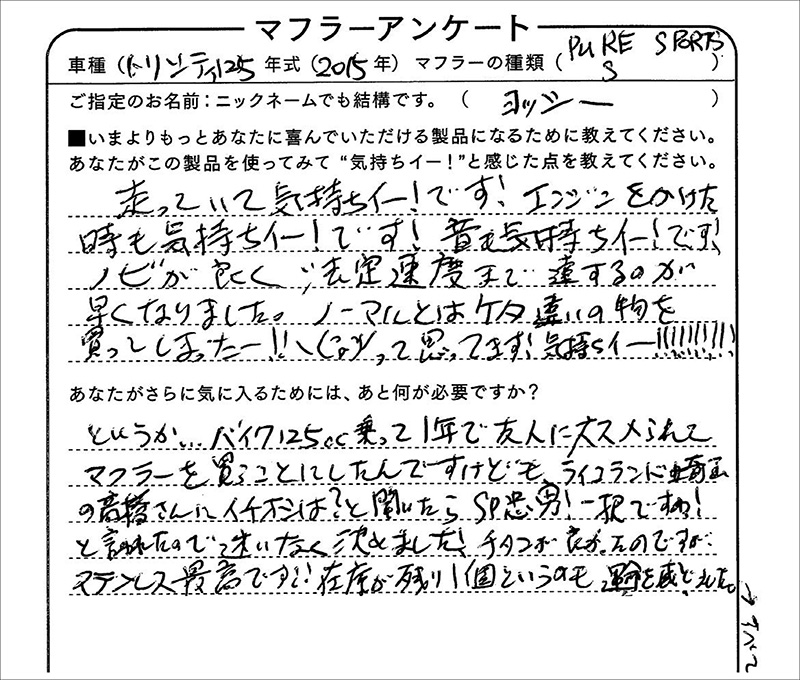 マフラーアンケート
車種（トリシティ125 年式（2015年）マフラーの種類（PURE SPORTS S）
ご指定のお名前：ニックネームでも結構です。（ヨッシー）
■いまよりもっとあなたに喜んでいただける製品になるために教えてください。
あなたがこの製品を使ってみて“気持ちイー！”と感じた点を教えてください。
走っていて気持ちイー！です！エンジンをかけた
時も気持ちイー！です！音も気持ちイー！です！
ノビが良く、法定速度まで達するのが
早くなりました。ノーマルとはケタ違いの物を
買ってしまったー！！って思ってます！気持ちイー！！！！！！！！！
あなたがさらに気に入るためには、あと何が必要ですか？
というか…バイク125cc乗って1年で友人にススメられて
マフラーを買うことにしたんですけども、ライコランド埼玉
の高橋さんにイチオシは？と聞いたらSP忠男！一択ですね！
と言われたので迷いなく決めました！チタンが良かったのですが
ステンレス最高です！！在庫が残り1個というのも運命を感じました。
→すべて